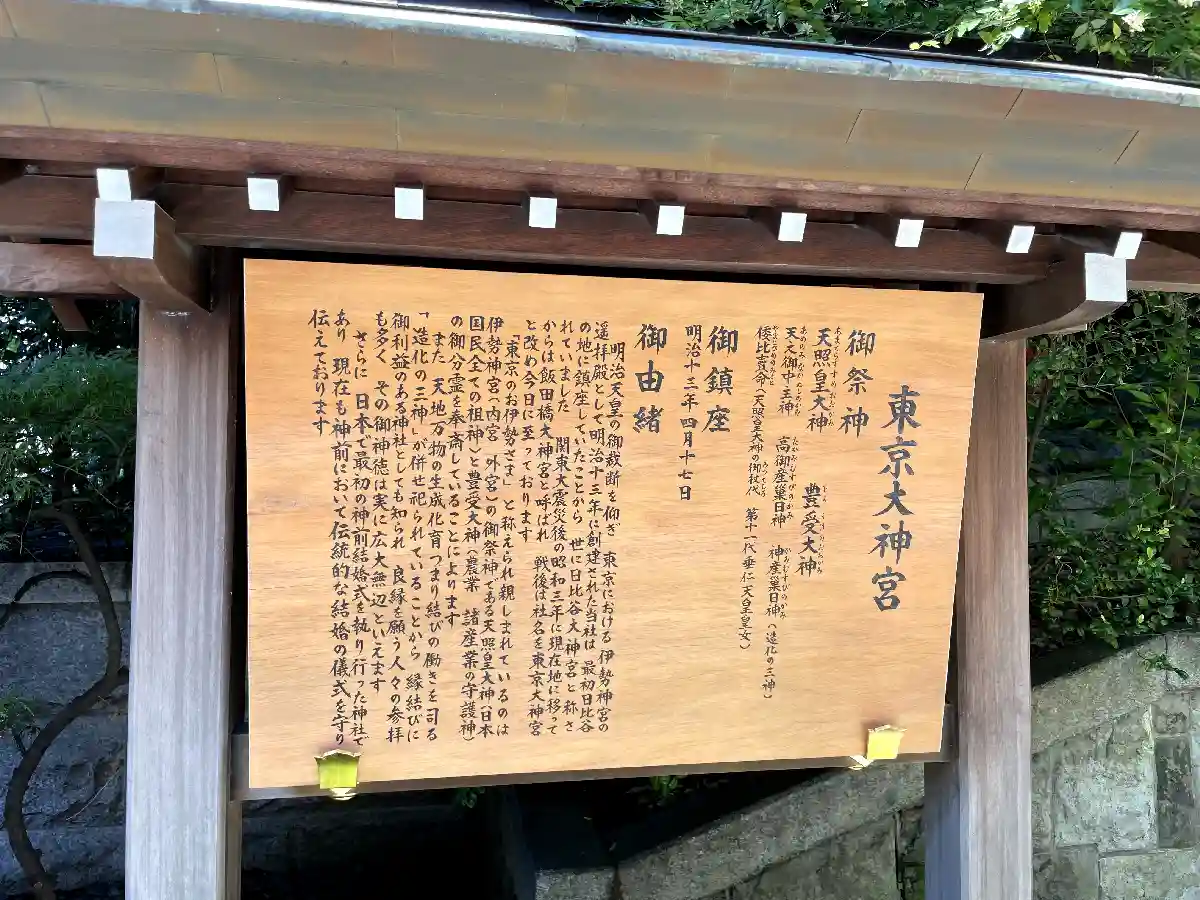 東京大神宮
御祭神
天照皇大神 豊受大神
天之御中主神 高御産巣日神 神産巣日神（造化の三神）
倭比賣命（天照皇大神の御杖代 第十一代垂仁天皇皇女）
御鎮座
明治十三年四月十七日
御由緒
明治天皇の御裁断を仰ぎ 東京における伊勢神宮の
遥拝殿として明治十三年に創建された当社は 最初日比谷
の地に鎮座していたことから 世に日比谷大神宮と称さ
れていました 関東大震災後の昭和三年に現在地に移って
からは飯田橋大神宮と呼ばれ 戦後は社名を東京大神宮
と改め今日に至っております
「東京のお伊勢さま」と称えられ親しまれているのは
伊勢神宮（内宮 外宮）の御祭神である天照皇大神（日本
国民全ての祖神）と豊受大神（農業 諸産業の守護神）
の御分霊を奉斎していることによります
また 天地万物の生成化育つまり結びの働きを司る
「造化の三神」が併せ祀られていることから 縁結びに
御利益のある神社としても知られ 良縁を願う人々の参拝
も多く その御神徳は実に広大無辺といえます
さらに 日本で最初の神前結婚式を執り行った神社で
あり 現在も神前において伝統的な結婚の儀式を守り
伝えております